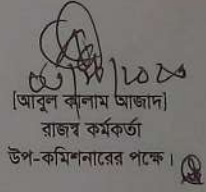 [আবুল কালাম আজাদ]
রাজস্ব কর্মকর্তা
উপ-কমিশনারের পক্ষে।